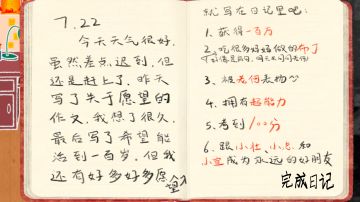 7.22
今天天气很好，
虽然差点迟到，但
还是赶上了。昨天
写了关于愿望的
作文，我想了很久，
最后写了希望能
活到一百岁，但我
还有好多好多愿望
就写在日记里吧：
1. 获得一百万
2. 吃很多好好做的布丁
3. 被老师表扬
4. 拥有超能力
5. 考到100分
6. 跟小
成为永远的好朋友
完成日记